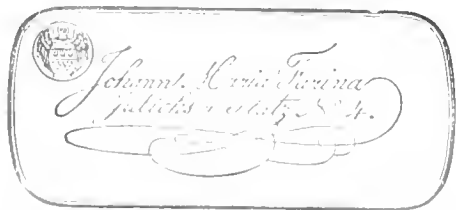 Johann Maria Farina
jülichs platz No 4.